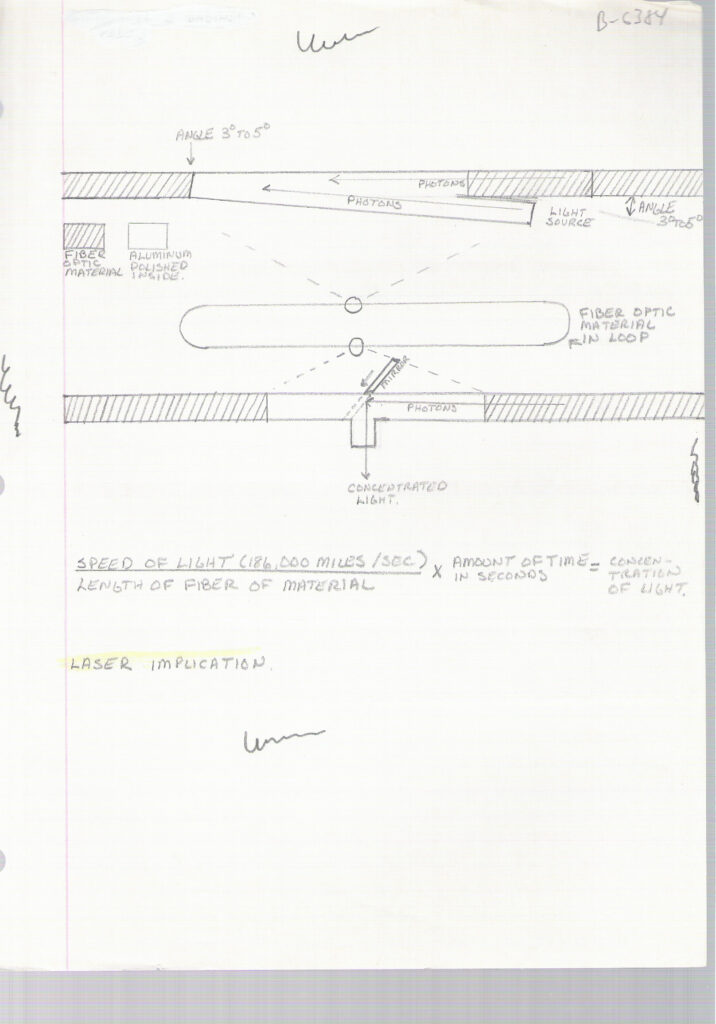 B-6384
ANGLE 3° TO 5°
PHOTONS
PHOTONS
LIGHT
SOURCE
ANGLE
3° TO 5°
FIBER
OPTIC
MATERIAL
ALUMINUM
POLISHED
INSIDE.
FIBER OPTIC
MATERIAL
IN LOOP
MIRROR
PHOTONS
CONCENTRATED
LIGHT.
SPEED OF LIGHT (186,000 MILES/SEC)
LENGTH OF FIBER OF MATERIAL
X AMOUNT OF TIME
IN SECONDS
= CONCEN-
TRATION
OF LIGHT.
LASER IMPLICATION.